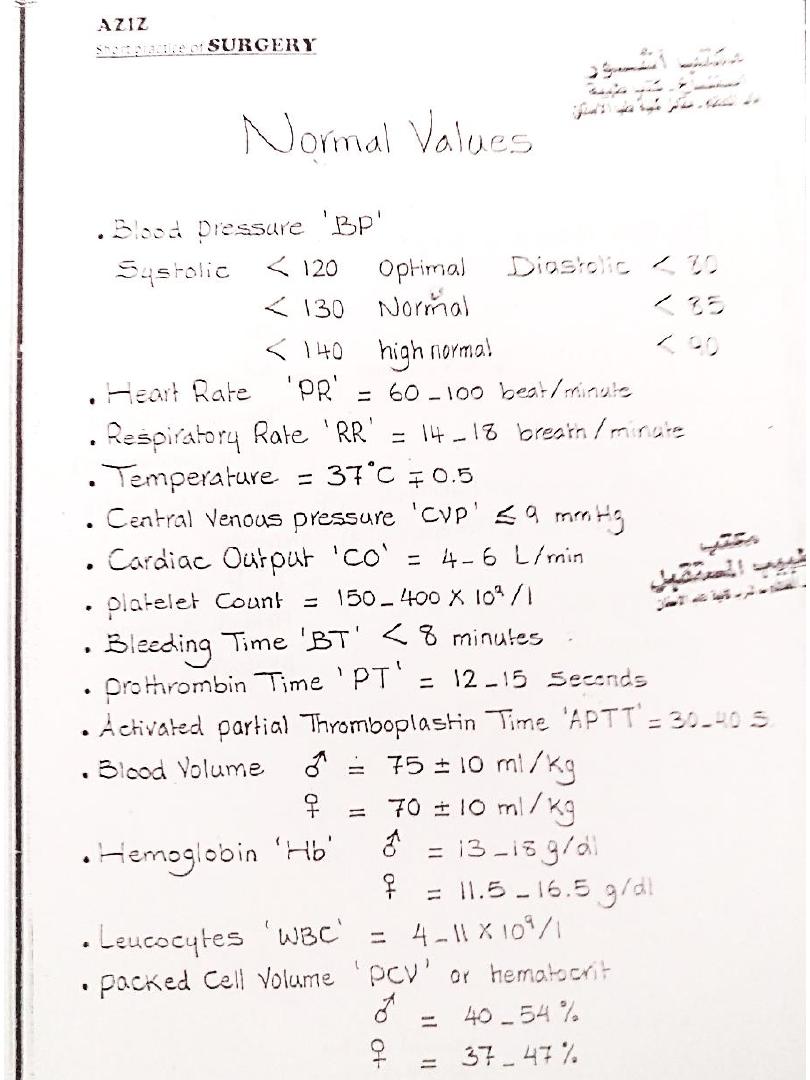 AZIZ
Short practice of SURGERY
مكتب
Normal Values
• Blood pressure 'BP'
Systolic < 120 Optimal Diastolic < 80
< 130 Normal < 85
< 140 high normal < 90
• Heart Rate 'PR' = 60_100 beat/minute
• Respiratory Rate 'RR' = 14_18 breath/minute
• Temperature = 37°C ∓ 0.5
• Central Venous pressure 'CVP' ≤ 9 mmHg
• Cardiac Output 'CO' = 4-6 L/min
• platelet Count = 150_400 X 10⁹/l
مكتب
طبيب المستقبل
• Bleeding Time 'BT' < 8 minutes
• prothrombin Time 'PT' = 12_15 Seconds
• Activated partial Thromboplastin Time 'APTT' = 30_40 S
• Blood Volume ♂ = 75 ± 10 ml/Kg
♀ = 70 ± 10 ml/kg
• Hemoglobin 'Hb' ♂ = 13_18 g/dl
♀ = 11.5_16.5 g/dl
• Leucocytes 'WBC' = 4_11 X 10⁹/l
• packed Cell Volume 'PCV' or hematocrit
♂ = 40_54%
♀ = 37_47%